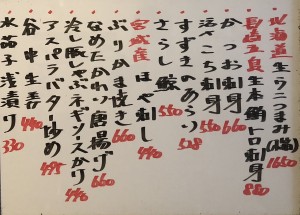 北海道 生うにつまみ(塩) 1650
長崎五島 生本鮪トロ刺身 880
かつお刺身 660
活〆こち刺身 550
すずきのあらい 528
さらし鯨 550
宮城産 ほや刺し 440
ぶりかま焼き 660
なめたかわり唐揚げ 660
冷し豚しゃぶネギソースかけ 440
アスパラバター炒め 495
谷中生姜 440
水茄子浅漬り 330